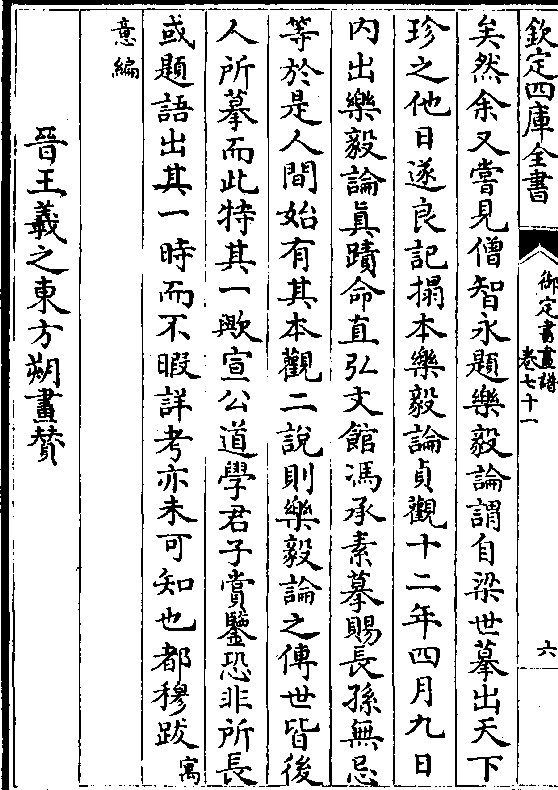 欽定四庫全書
御定書畫譜
卷七十一
六
矣然余又嘗見僧智永題樂毅論謂自梁世摹出天下
珍之他日遂良記搨本樂毅論貞觀十二年四月九日
内出樂毅論真蹟命直弘文館馮承素摹賜長孫無忌
等於是人間始有其本觀二說則樂毅論之傳世皆後
人所摹而此特其一歟宣公道學君子賞鑒恐非所長
或題語出其一時而不暇詳考亦未可知也都穆跋寓
意編
晉王羲之東方朔畫賛